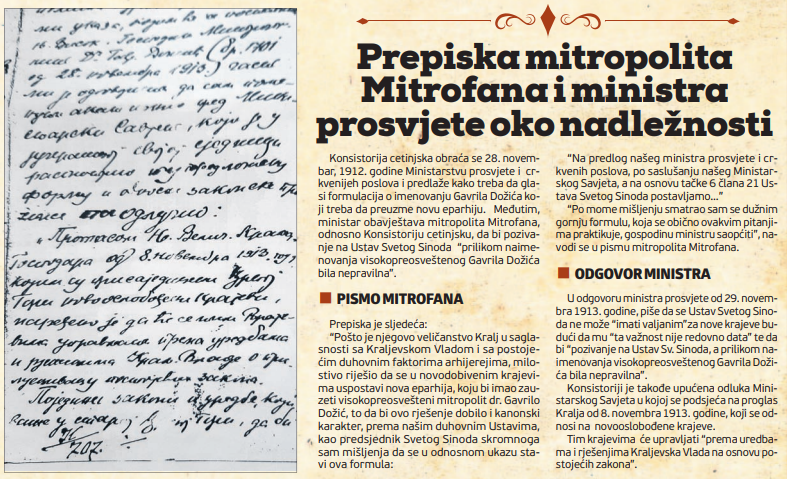 Prepiska mitropolita
Mitrofana i ministra
prosvjete oko nadležnosti
од 28. новембра 1913.
одлучио:
„Прогласом Њ. Велич. Краља
Господара од 8. новембра 1913. год.
којим су присаједињени Црној
Гори новоослобођени крајеви,
наређено је да ће се њима
управљати према уредбама
и рјешењима Краљ. Владе о при-
закона.
закони и уредбе, који
Гори, да би
207.
Konsistorija cetinjska obraća se 28. novem-
bar, 1912. godine Ministarstvu prosvjete i cr-
kvenijeh poslova i predlaže kako treba da gla-
si formulacija o imenovanju Gavrila Dožića ko-
ji treba da preuzme novu eparhiju. Međutim,
ministar obavještava mitropolita Mitrofana,
odnosno Konsistoriju cetinjsku, da bi poziva-
nje na Ustav Svetog Sinoda “prilikom naime-
novanja visokopreosveštenog Gavrila Dožića
bila nepravilna”.
PISMO MITROFANA
Prepiska je sljedeća:
“Pošto je njegovo veličanstvo Kralj u sagla-
snosti sa Kraljevskom Vladom i sa postoje-
ćim duhovnim faktorima arhijerejima, milo-
stivo riješio da se u novodobivenim krajevi-
ma uspostavi nova eparhija, koju bi imao zau-
zeti visokopreosvešteni mitropolit dr. Gavrilo
Dožić, to da bi ovo rješenje dobilo i kanonski
karakter, prema našim duhovnim Ustavima,
kao predsjednik Svetog Sinoda skromnoga
sam mišljenja da se u odnosnom ukazu sta-
vi ova formula:
“Na predlog našeg ministra prosvjete i cr-
kvenih poslova, po saslušanju našeg Ministar-
skog Savjeta, a na osnovu tačke 6 člana 21 Us-
tava Svetog Sinoda postavljamo...”
“Po mome mišljenju smatrao sam se dužnim
gornju formulu, koja se obično ovakvim pitanji-
ma praktikuje, gospodinu ministru saopćiti”, na-
vodi se u pismu mitropolita Mitrofana.
ODGOVOR MINISTRA
U odgovoru ministra prosvjete od 29. novem-
bra 1913. godine, piše da se Ustav Svetog Sino-
da ne može “imati valjanim” za nove krajeve bu-
dući da mu “ta važnost nije redovno data” te da
bi “pozivanje na Ustav Sv. Sinoda, a prilikom na-
imenovanja visokopreosveštenog Gavrila Doži-
ća bila nepravilna”.
Konsistoriji je takođe upućena odluka Mini-
starskog Savjeta u kojoj se podsjeća na proglas
Kralja od 8. novembra 1913. godine, koji se od-
nosi na novooslobođene krajeve.
Tim krajevima će upravljati “prema uredba-
ma i rješenjima Kraljevska Vlada na osnovu po-
stojećih zakona”.